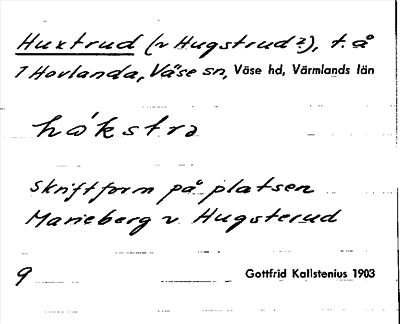 Huxtrud (v Hugstrud?), t. å
1 Hovlanda, Väse sn, Väse hd, Värmlands län
hókstrɷ
skriftform på platsen
Marieberg v. Hugsterud
9 Gottfrid Kallstenius 1903